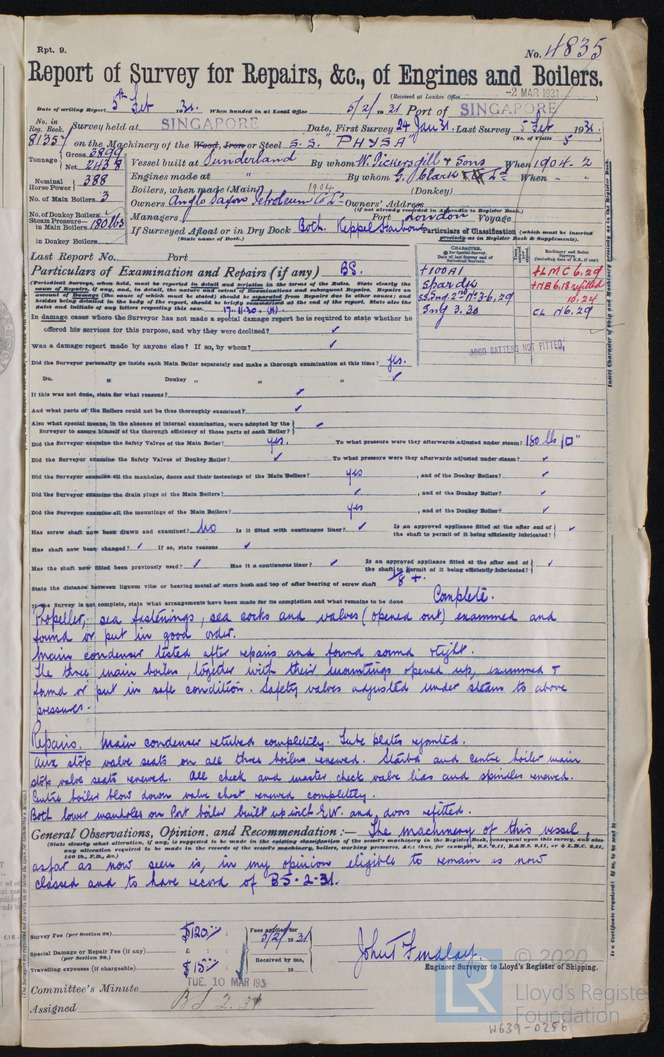 Rpt. 9.
No. 4835
Report of Survey for Repairs, &c., of Engines and Boilers.
(Received at London Office -2 MAR 1931)
Date of writing Report 5th Feb 1931. When handed in at Local Office 5/2/1931 Port of SINGAPORE
No. in Reg. Book. Survey held at SINGAPORE Date, First Survey 24 Jan 31. Last Survey 5 Feb 1931.
(No. of Visits 5
81357 on the Machinery of the Wood, Iron or Steel S.S. "PHYSA"
Tonnage Gross 3899 Net 2438
Vessel built at Sunderland By whom W. Pickersgill & Sons When 1904. 2
Nominal Horse Power 388
Engines made at " By whom G. Clark Ld When - "
No. of Main Boilers 3
Boilers, when made (Main) 1904 (Donkey)
Owners Anglo Saxon Petroleum Co Ld Owners' Address
(if not already recorded in Appendix to Register Book.)
No. of Donkey Boilers
Steam Pressure in Main Boilers 180 lbs
in Donkey Boilers
Managers Port London Voyage
If Surveyed Afloat or in Dry Dock Both. Keppel Harbour
(State name of Dock.)
Particulars of Classification (which must be inserted precisely as in Register Book & Supplements).
Last Report No. Port
Particulars of Examination and Repairs (if any) BS.
+100A1
spar dk
3.30
+LMC 6.29
+NB 6.18 refitted
10.24
CL N6.29
CARGO BATTENS NOT FITTED
In damage cases where the Surveyor has not made a special damage report he is required to state whether he
offered his services for this purpose, and why they were declined? ✓
Was a damage report made by anyone else? If so, by whom? ✓
Did the Surveyor personally go inside each Main Boiler separately and make a thorough examination at this time? Yes.
Do. " Donkey " " " ✓
If this was not done, state for what reasons? ✓
And what parts of the Boilers could not be thoroughly examined? ✓
Also what special means, in the absence of internal examination, were adopted by the
Surveyor to assure himself of the thorough efficiency of those parts of each Boiler? ✓
Did the Surveyor examine the Safety Valves of the Main Boiler? yes. To what pressure were they afterwards adjusted under steam? 180 lbs □"
Did the Surveyor examine the Safety Valves of Donkey Boiler? ✓ To what pressure were they afterwards adjusted under steam? ✓
Did the Surveyor examine all the manholes, doors and their fastenings of the Main Boilers? yes , and of the Donkey Boiler? ✓
Did the Surveyor examine the drain plugs of the Main Boilers? ✓ , and of the Donkey Boiler? ✓
Did the Surveyor examine all the mountings of the Main Boilers? yes , and of the Donkey Boiler? ✓
Has screw shaft now been drawn and examined? No Is it fitted with continuous liner? ✓ Is an approved appliance fitted at the after end of the shaft to permit of it being efficiently lubricated? ✓
Has shaft now been changed? ✓ If so, state reasons ✓
Has the shaft now fitted been previously used? ✓ Has it a continuous liner? ✓ Is an approved appliance fitted at the after end of the shaft to permit of it being efficiently lubricated? ✓
State the distance between lignum vitæ or bearing metal of stern bush and top of after bearing of screw shaft 1/8 +.
If the Survey is not complete, state what arrangements have been made for its completion and what remains to be done Complete.
Propeller, sea fastenings, sea cocks and valves (opened out) examined and
found or put in good order.
Main condenser tested after repairs and found sound & tight.
The three main boilers, together with their mountings opened up, examined &
found or put in safe condition. Safety valves adjusted under steam to above
pressures.
Repairs. Main condenser retubed completely. Tube plates rejointed.
Aux stop valve seats on all three boilers renewed. Starbd and centre boiler main
stop valve seats renewed. All check and master check valve lids and spindles renewed.
Centre boiler blow down valve chest renewed completely.
Both lower manholes on Port boiler built up with E.W. and doors refitted.
General Observations, Opinion, and Recommendation:— The machinery of this vessel,
as far as now seen is, in my opinion eligible to remain as now
classed and to have record of BS. 2.31.
Survey Fee (per Section 29) $120
Fees applied for 5/2/1931
Special Damage or Repair Fee (if any) (per Section 29.)
Travelling expenses (if chargeable) $15
Received by me, 19
John T Findlay
Engineer Surveyor to Lloyd's Register of Shipping.
Committee's Minute TUE. 10 MAR 193
Assigned BS 2.31
© 2020
Lloyd's Register
Foundation
LR
W639-0256